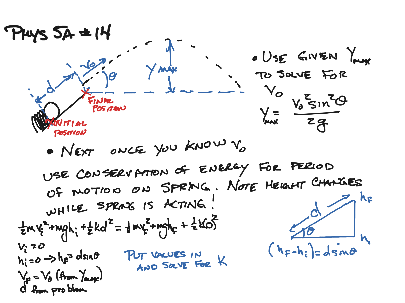 PHYS 5A #14
i
d
f
v₀
θ
Y MAX
FINAL
POSITION
INITIAL
POSITION
• USE GIVEN Y MAX
TO SOLVE FOR
V₀
Y MAX = V₀² sin²θ / 2g
• NEXT ONCE YOU KNOW V₀
USE CONSERVATION OF ENERGY FOR PERIOD
OF MOTION ON SPRING. NOTE HEIGHT CHANGES
WHILE SPRING IS ACTING!
½mVᵢ² + mghᵢ + ½kd² = ½mV_F² + mgh_F + ½k(0)²
Vᵢ = 0
hᵢ = 0 → h_F = d sinθ
V_F = V₀ (from Y MAX)
d from problem
PUT VALUES IN
AND SOLVE FOR K
d
h_F
θ
hᵢ
(h_F - hᵢ) = d sinθ